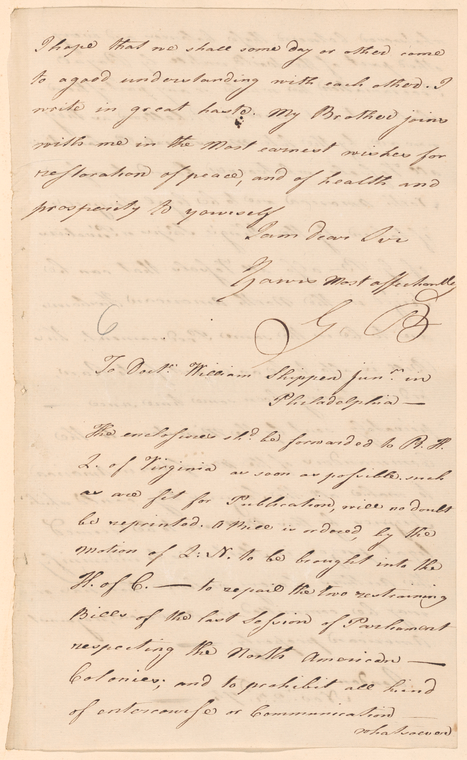 I hope that we shall some day or other come
to a good understanding with each other. I
write in great haste. My Brother joins
with me in the most earnest wishes for
restoration of peace, and of health and
prosperity to yourself
I am Dear Sir
Yours most affectionately
G B
To Doctr. William Shippen Junr. in
Philadelphia —
The enclosures shd. be forwarded to R. H.
L. of Virginia as soon as possible. such
as are fit for Publication, will no doubt
be reprinted. A Bill is ordered, by the
motion of L: N. to be brought into the
H. of C. — to repeal the two restraining
Bills of the last Session of Parliament
respecting the North American —
Colonies; and to prohibit all kind
of entercourse or Communication
whatsoever